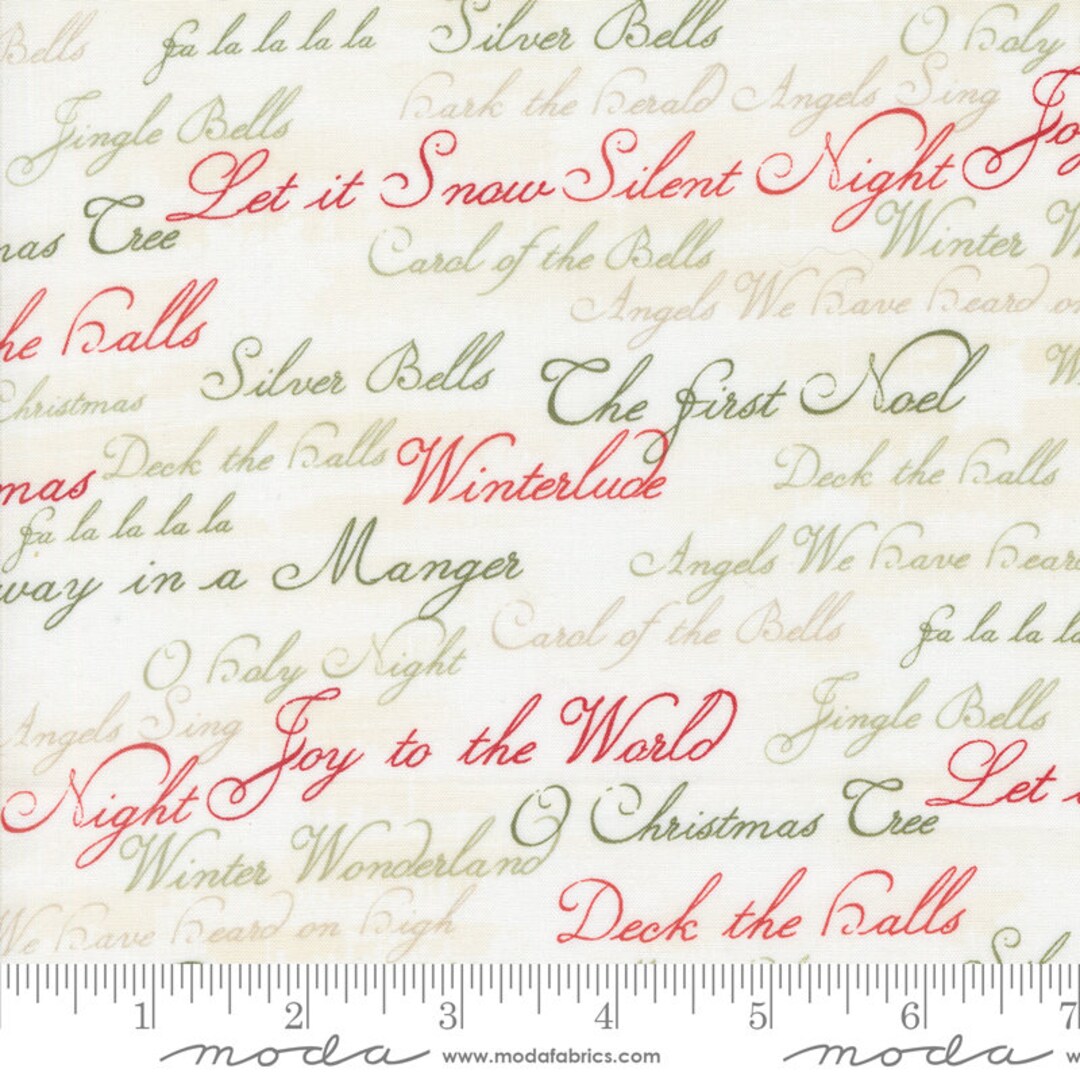 Bells fa la la la la Silver Bells O holy
Jingle Bells hark the herald Angels Sing Joy
Let it Snow Silent Night
mas Tree Carol of the Bells Winter W
Angels We have heard on
he halls
Silver Bells The first Noel W
Christmas
Deck the halls Winterlude Deck the halls
mas
fa la la la la
way in a Manger Angels We have heard
Carol of the Bells fa la la la
O holy Night
Angels Sing Joy to the World Jingle Bells
Night O Christmas Tree Let i
Winter Wonderland
We have heard on high Deck the halls
Silver
1 2 3 4 5 6 7
moda www.modafabrics.com moda